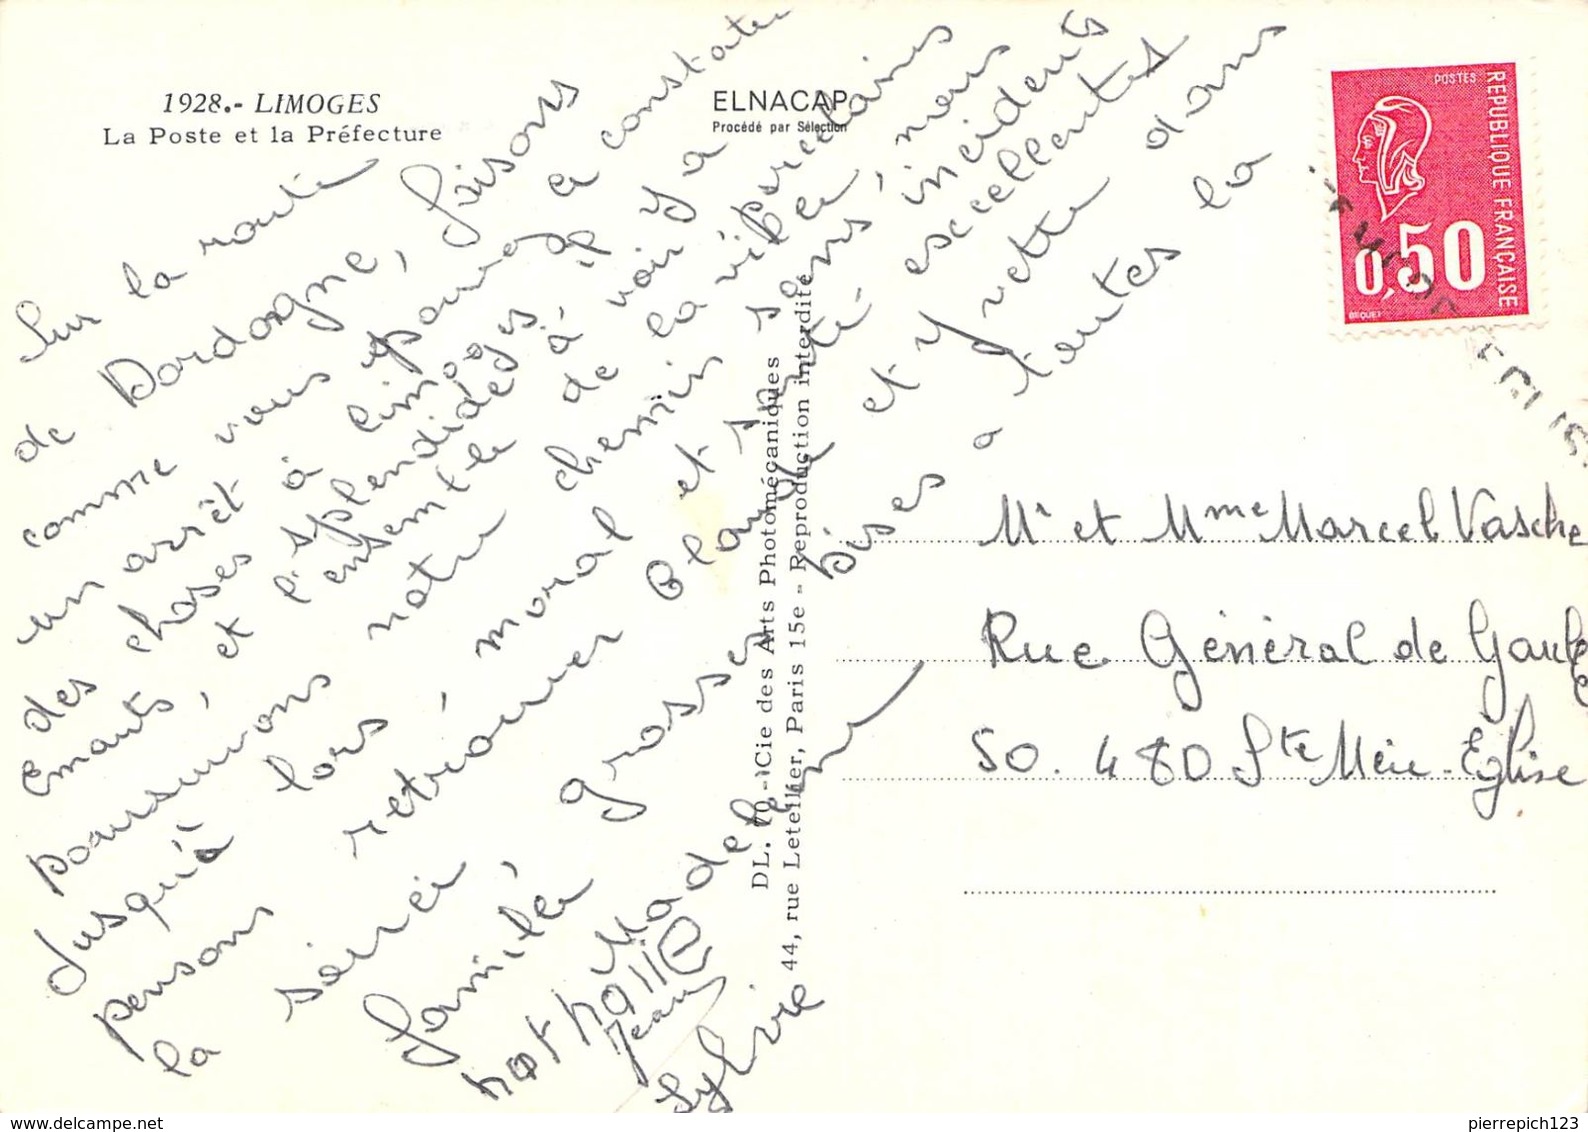 1928.- LIMOGES
La Poste et la Préfecture
ELNACAP
Procédé par Sélection
POSTES
REPUBLIQUE FRANÇAISE
0,50
BEQUET
Sur la route
de Dordogne, faisons
comme vous pouvez le constater
un arrêt à Limoges, il y a
des choses splendides à voir, porcelaines
Emaux, et l'ensemble de la ville, nous
poursuivons notre chemin sans incidents
jusqu'à lors, moral et santé excellentes
pensons retrouver Claude et Yvette dans
la soirée, grosses bises à toutes la
famille
Madeleine
nathalie
Jean
Sylvie
DL. 10 - Cie des Arts Photomécaniques
44, rue Letellier, Paris 15e - Reproduction interdite
Mr et Mme Marcel Vasche
Rue Général de Gaulle
50. 480 Ste Mère-Eglise
www.delcampe.net
pierrepich123